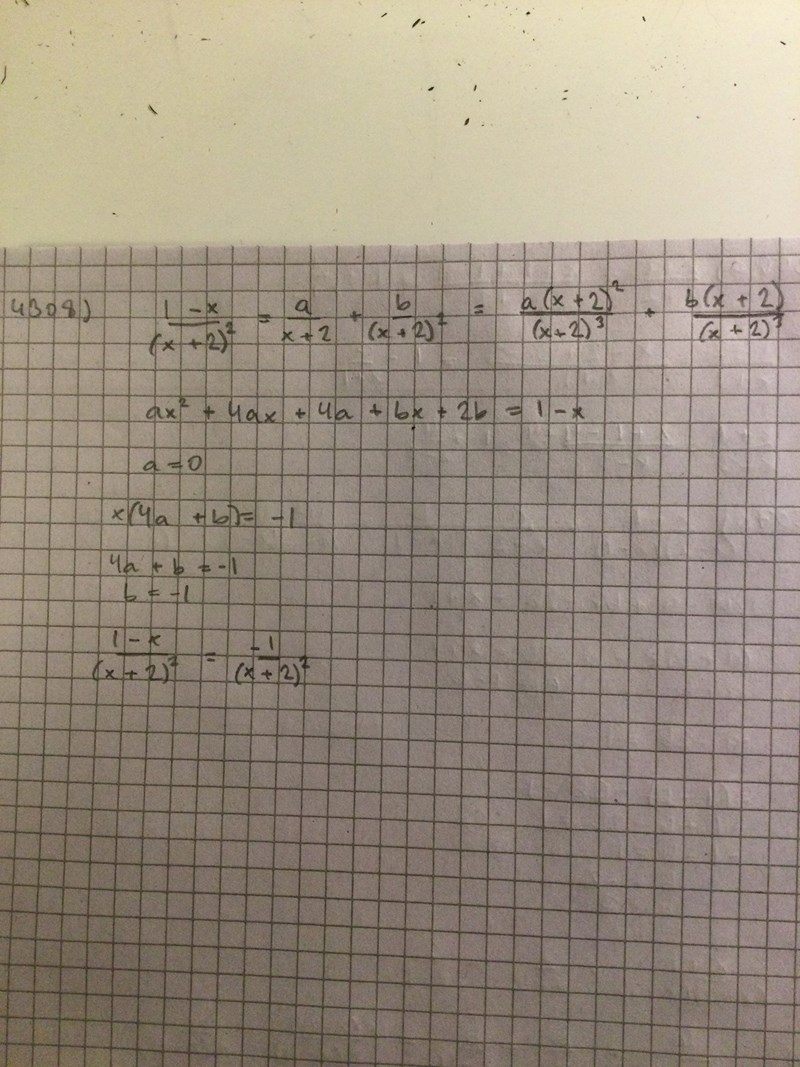 4308) (1-x)/(x+2)² = a/(x+2) + b/(x+2)² = a(x+2)²/(x+2)³ + b(x+2)/(x+2)³
ax² + 4ax + 4a + bx + 2b = 1-x
a = 0
x(4a + b) = -1
4a + b = -1
b = -1
(1-x)/(x+2)² = -1/(x+2)²